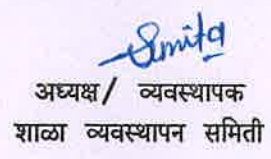 Sumita
अध्यक्ष/ व्यवस्थापक
शाळा व्यवस्थापन समिती